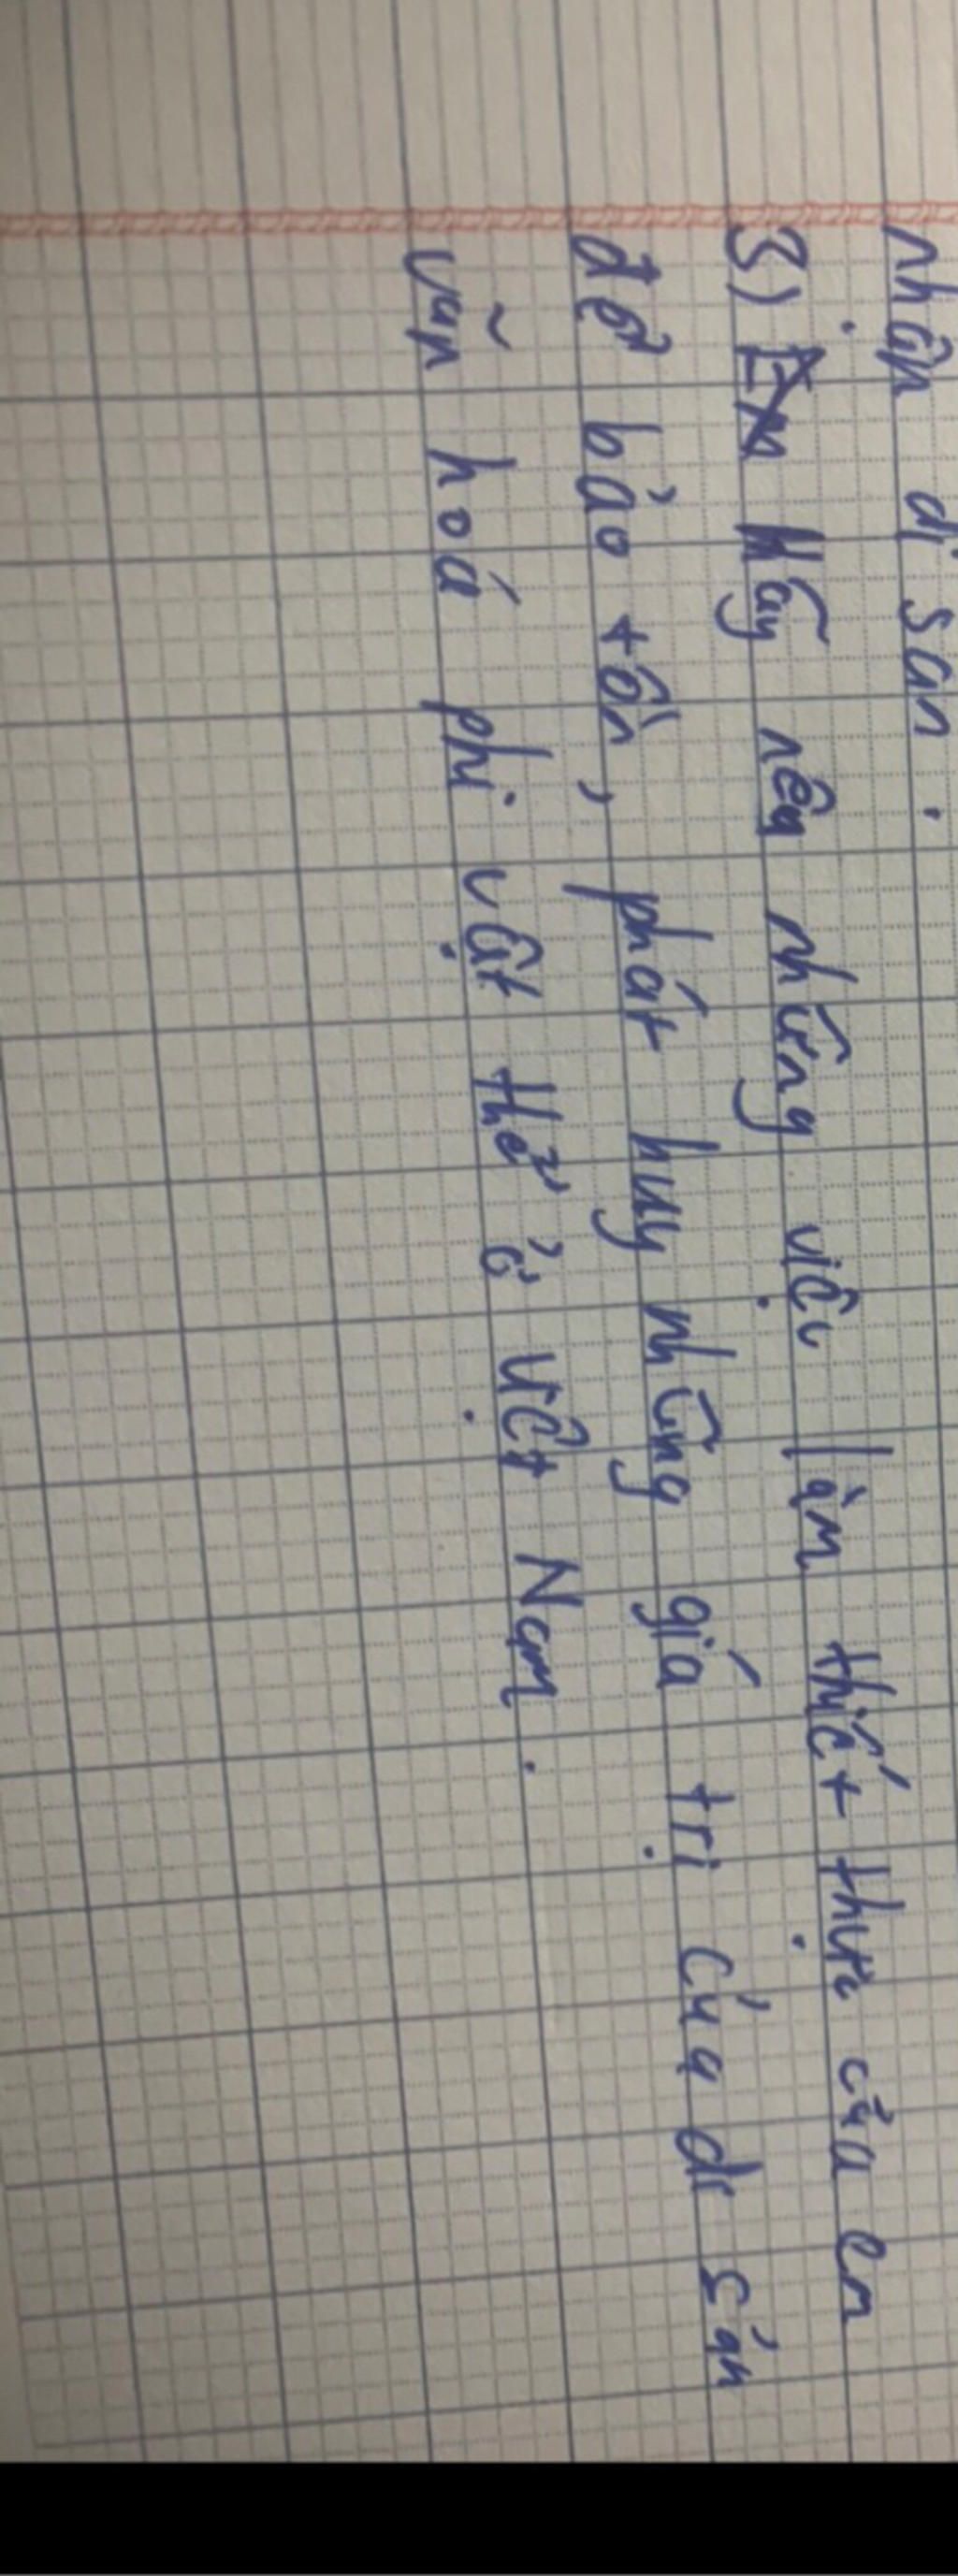 nhận di sản.
3) Hãy nêu những việc làm thiết thực của em
để bảo tồn, phát huy những giá trị của di sản
văn hoá phi vật thể ở Việt Nam.